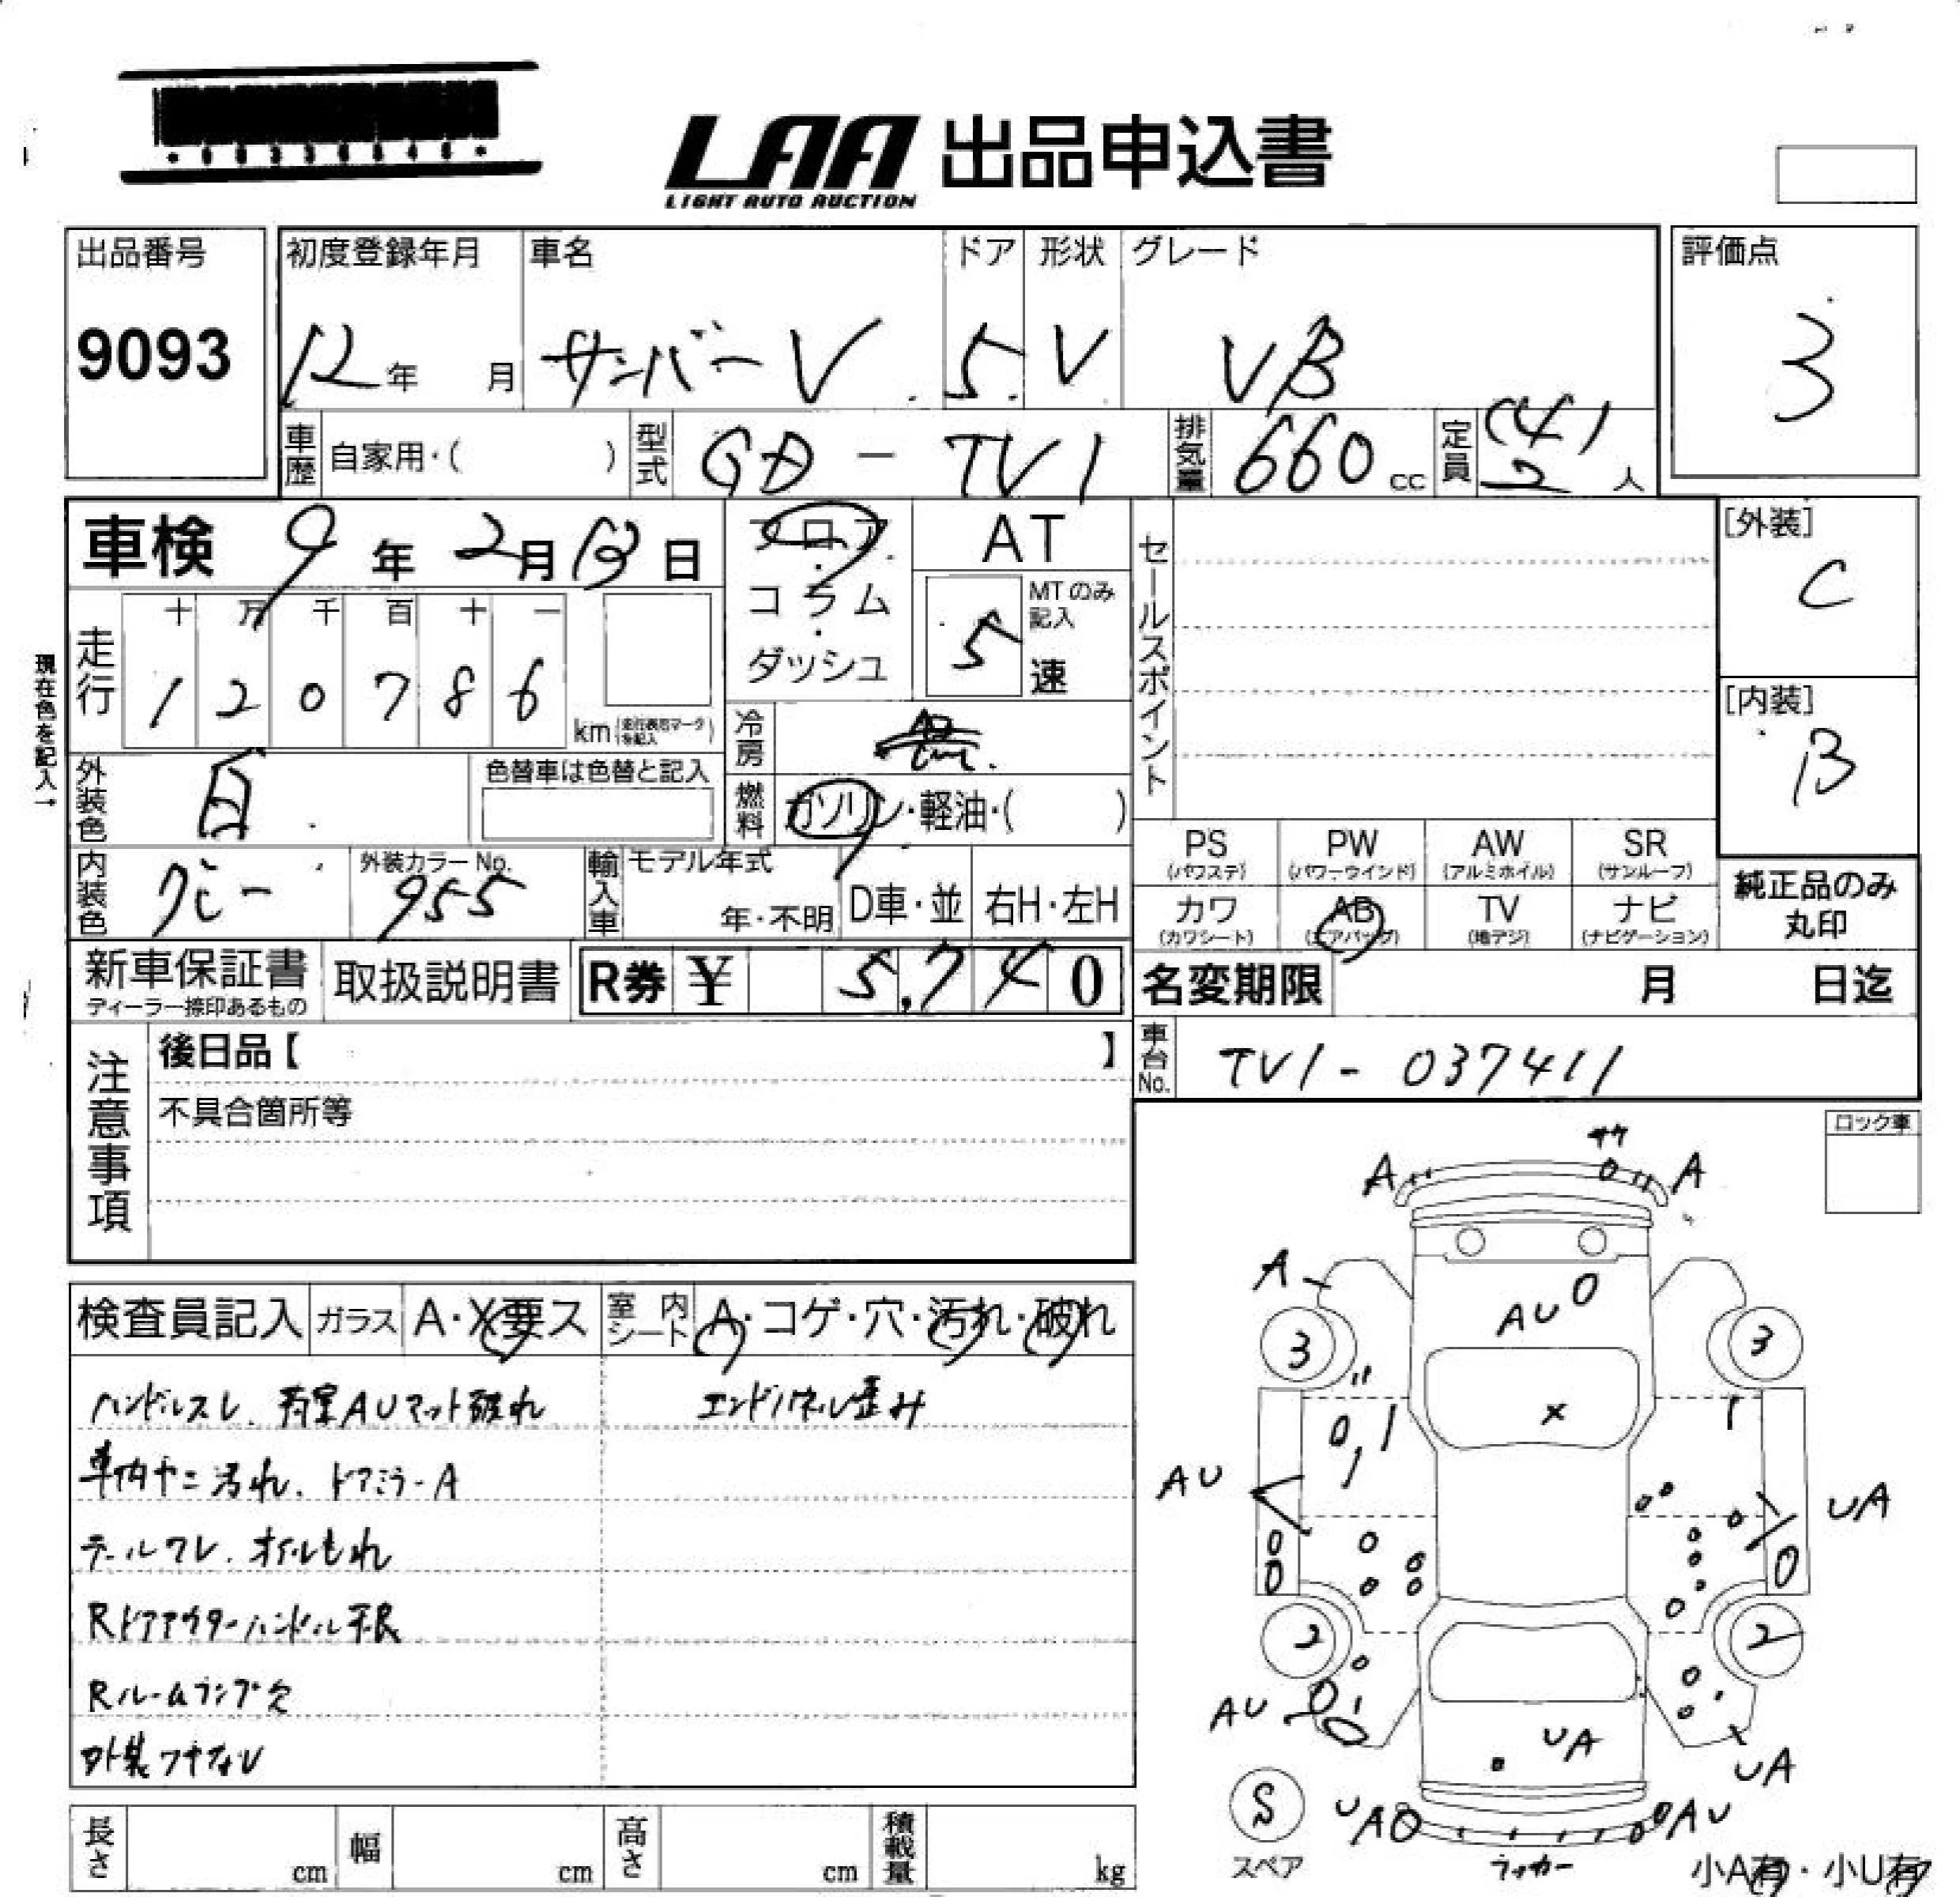 LAA 出品申込書
LIGHT AUTO AUCTION
出品番号 初度登録年月 車名 ドア 形状 グレード 評価点
9093 12年 月 サンバーV 5 V VB 3
車歴 自家用・( ) 型式 GD-TV1 排気量 660cc 定員 2(4)人
車検 9年2月13日 フロア・コラム・ダッシュ AT MTのみ記入 5速
セールスポイント
[外装] C
走行 十 万 千 百 十 一
1 2 0 7 8 6 km
現在色を記入→
[内装] B
冷房
外装色 白 色替車は色替と記入 燃料 ガソリン・軽油・( )
PS (パワステ) PW (パワーウインド) AW (アルミホイル) SR (サンルーフ)
内装色 グレー 外装カラーNo. 955 輸入車 モデル年式 年・不明 D車・並 右H・左H
カワ (カワシート) AB (エアバッグ) TV (地デジ) ナビ (ナビゲーション)
純正品のみ
丸印
新車保証書 ディーラー捺印あるもの 取扱説明書 R券 ¥ 5,740 名変期限 月 日迄
注意事項 後日品【 】 車台No. TV1-037411
不具合箇所等
ロック車
検査員記入 ガラス A・X要ス 室内シート A・コゲ・穴・汚れ・破れ
ハンドルスレ、荷室AUマット破れ エンドパネル歪み
車内ヤニ汚れ、ドアミラーA
テールワレ、オイルもれ
Rドアアウターハンドル不良
Rルームランプ欠
外装ツヤなし
サケ
A A
A
AU
3 3
X
AU UA
2 2
AU
UA
UA
S
スペア
UA AU
ラッカー
小A有・小U有
長さ cm 幅 cm 高さ cm 積載量 kg